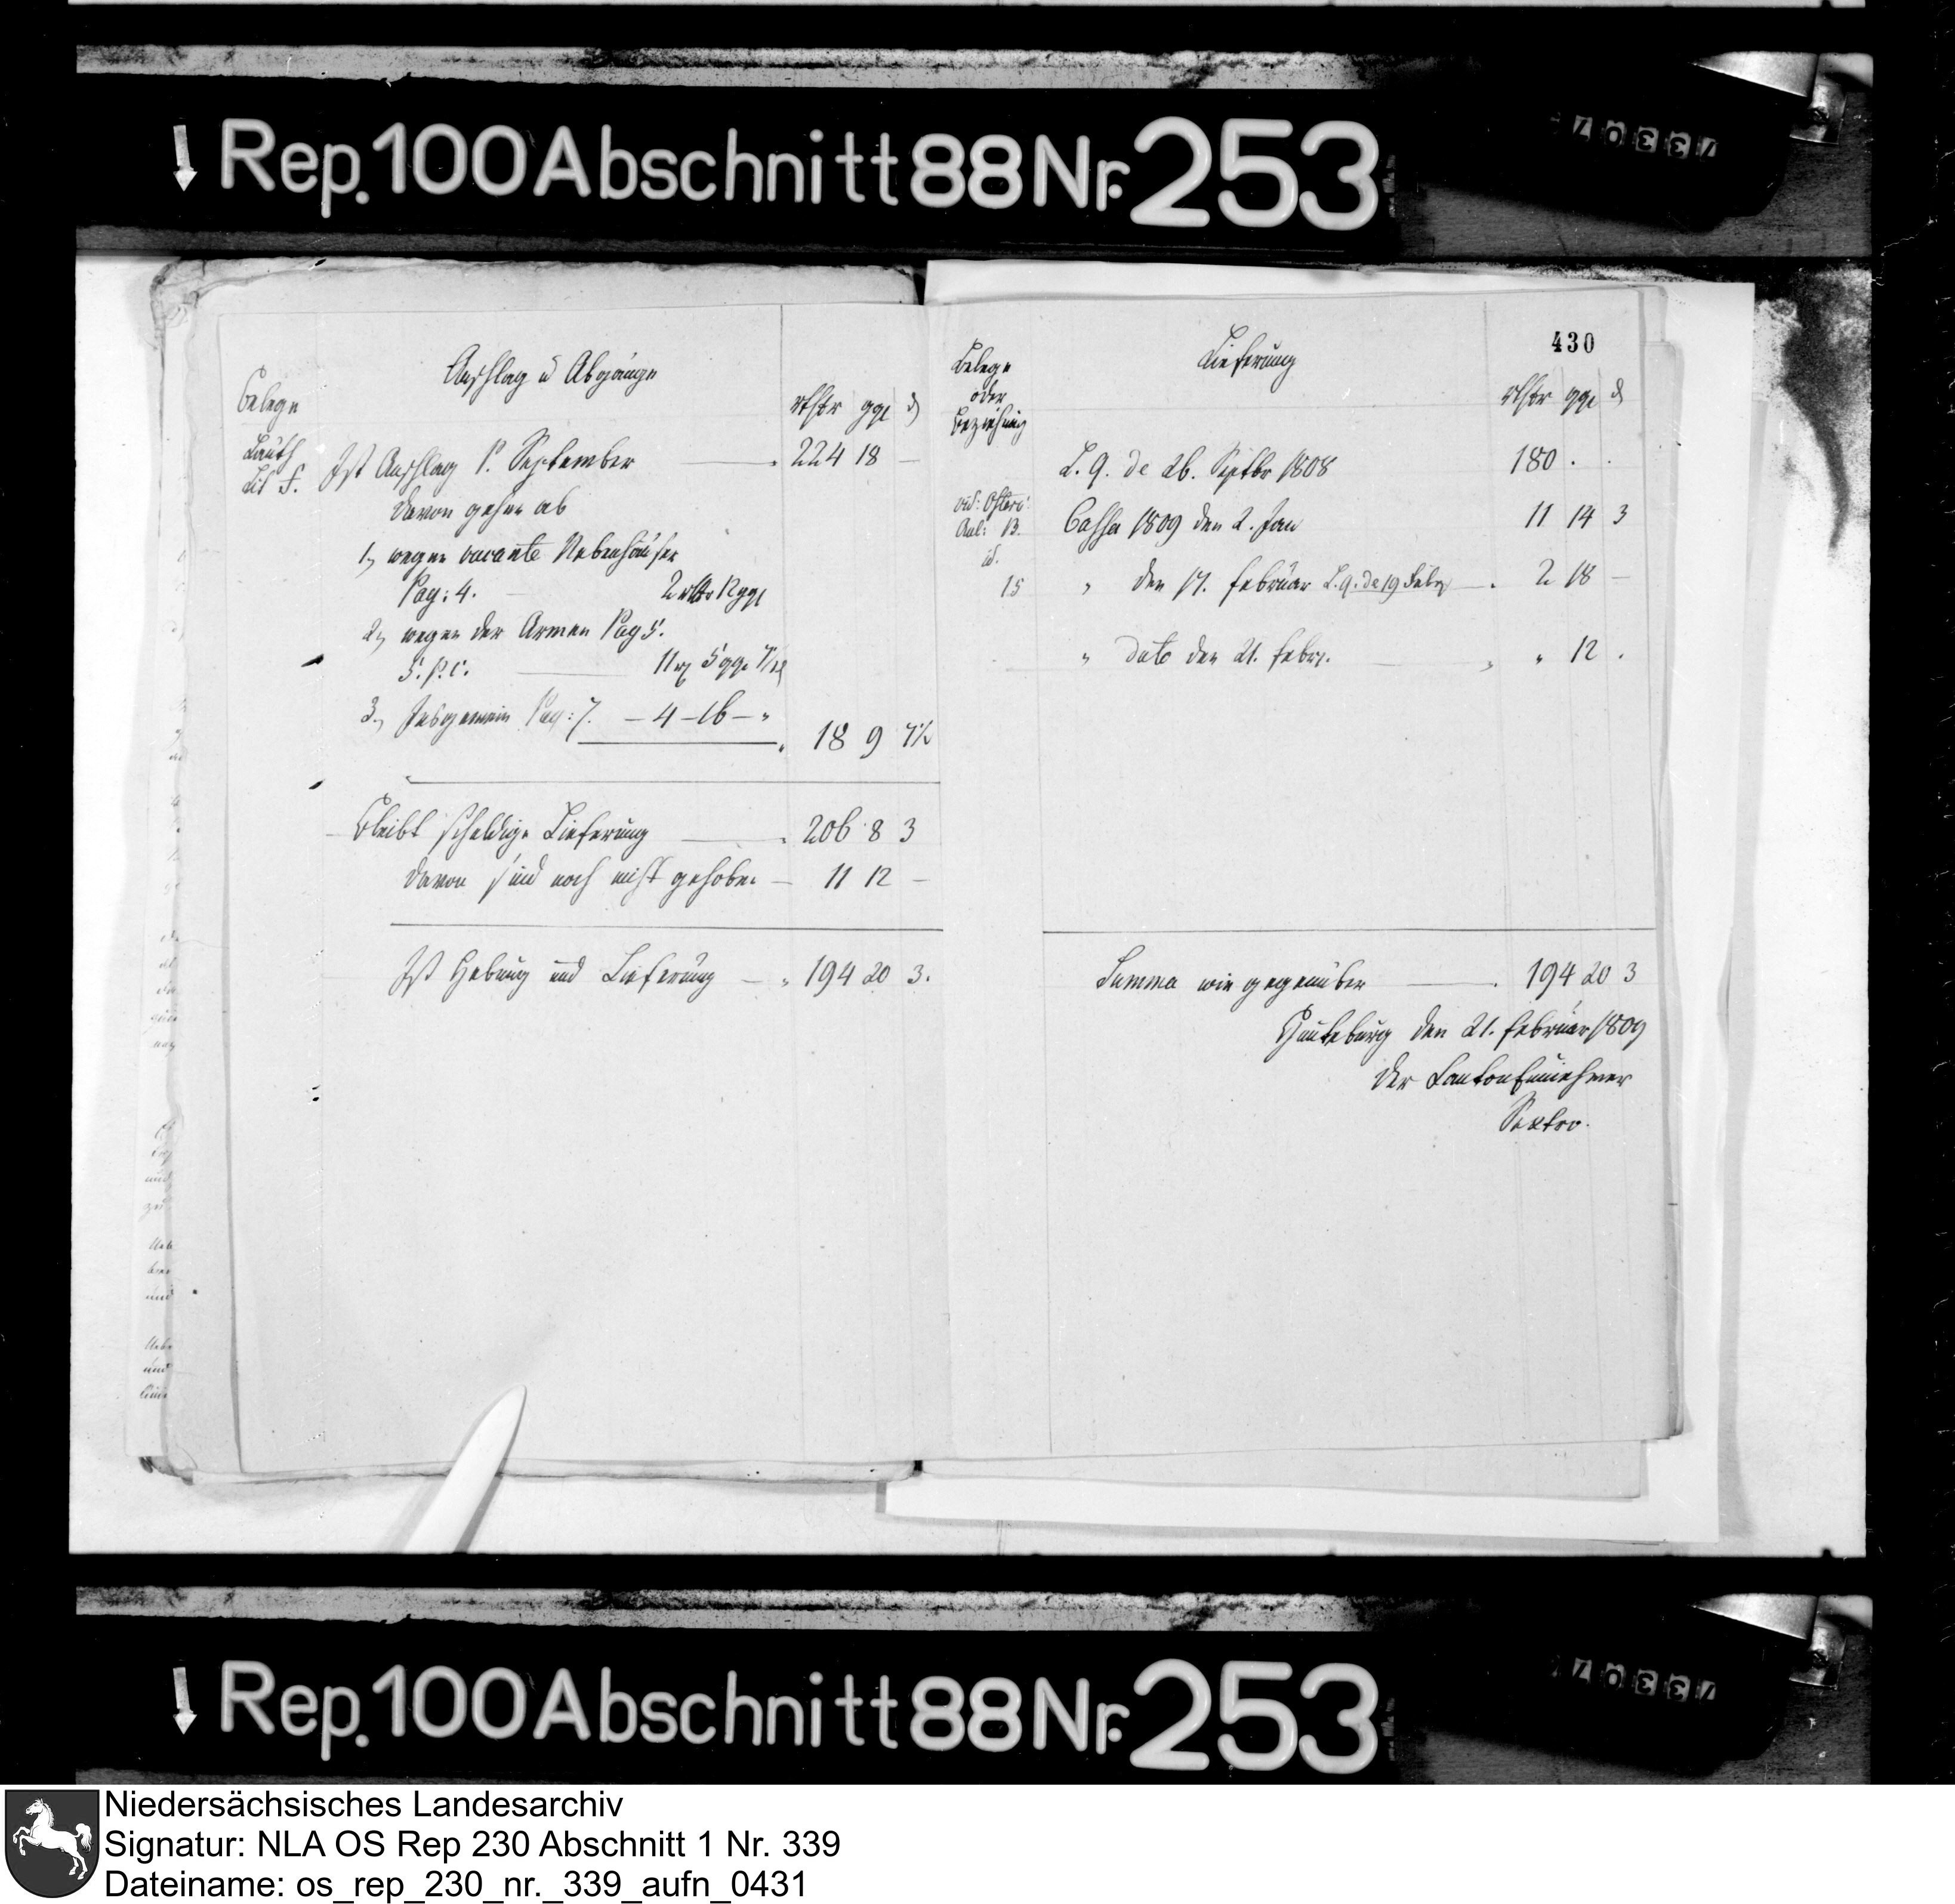 Rep. 100 Abschnitt 88 Nr. 253
Anschlag u Abgänge
Belege
rthlr ggl d
Lauth
Lit F.
Ist Anschlag p. September 224 18 —
davon gehen ab
1, wegen vacante Nebenhäuser
Pag: 4. 2 rthlr 12 ggl
2, wegen der Armen Pag 5.
5. p. c. 11 5 gg.
3, Insgemein Pag: 7. — 4 — 16 — "
18 9
Bleibt schuldige Lieferung 206 8 3
davon sind noch nicht gehoben — 11 12 —
Ist Hebung und Lieferung — 194 20 3.
430
Belege
oder
Beziehung
Lieferung
rthlr ggl d
L. q. de 26. Septbr 1808 180 . .
vid:
Anl: B.
Cassa 1809 den 2. Jan 11 14 3
id.
15 " den 17. Februar L. q. de 19 Febr 2 18 —
" dato den 21. Febr. " 12 .
Summa wie gegenüber 194 20 3
den 21. Februar 1809
der Canton Einnehmer
Sextro.
Rep. 100 Abschnitt 88 Nr. 253
Niedersächsisches Landesarchiv
Signatur: NLA OS Rep 230 Abschnitt 1 Nr. 339
Dateiname: os_rep_230_nr._339_aufn_0431